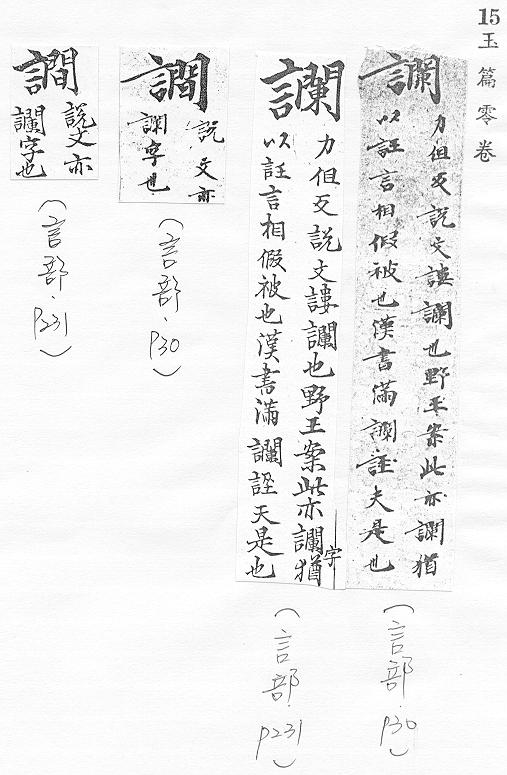 15玉篇零卷
讕
力但反說文謱讕也野王案此亦讕猶
以誈言相假被也漢書滿讕誣夫是也
(言部.P30)
讕
力但反說文謱讕也野王案此亦讕猶
字
以誈言相假被也漢書滿讕誣天是也
(言部.P231)
譋
說文亦
讕字也
(言部.P30)
譋
說文亦
讕字也
(言部.P231)